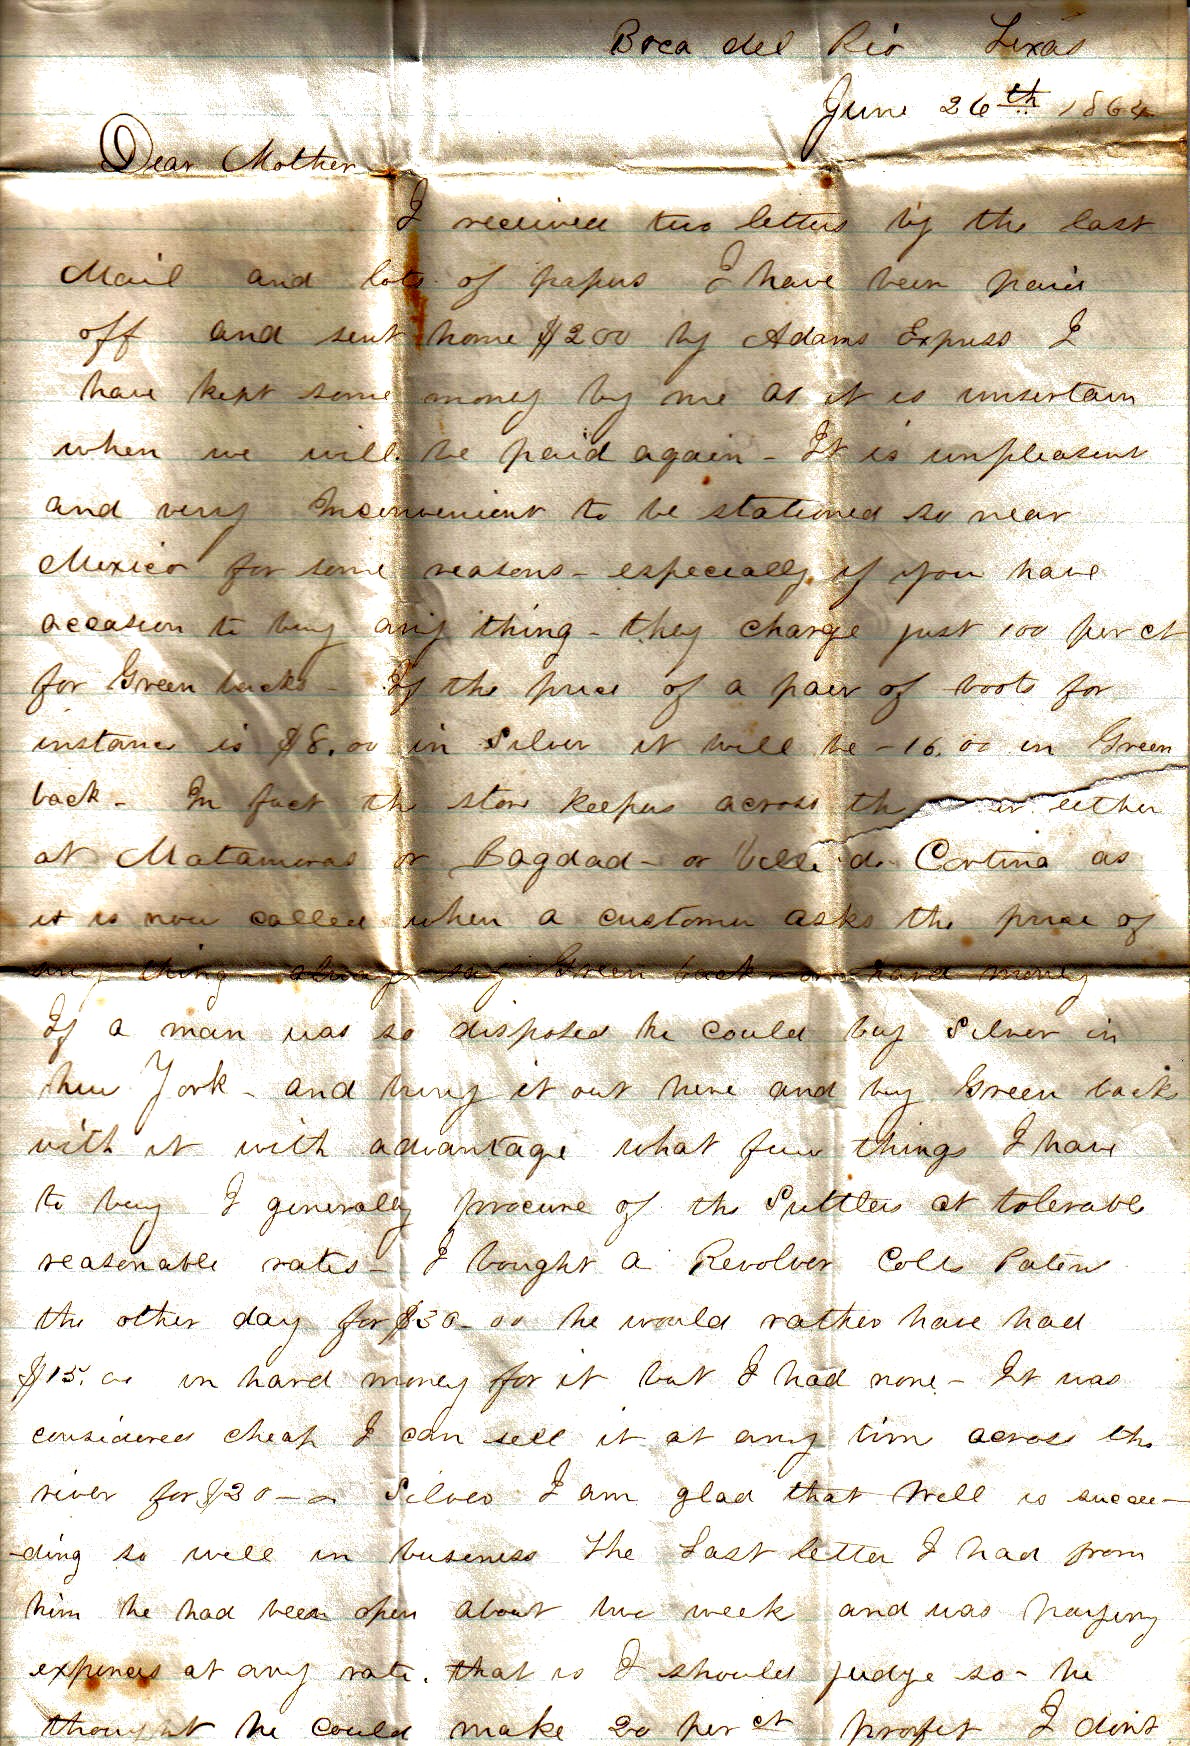 Boca del Rio Texas
June 26th 1864
Dear Mother
I received two letters by the last
Mail and lots of papers I have been paid
off and sent home $200 by Adams Express I
have kept some money by me as it is unsertain
when we will be paid again - It is unpleasent
and very Inconvenient to be stationed so near
Mexico for some reasons - especially if you have
accasion to buy any thing - they charge just 100 per ct
for Green backs - If the price of a pair of boots for
instance is $8.00 in Silver it will be - 16.00 in Green
back - In fact the store keepers across th er either
at Matamoras or Bagdad - or Ville de Cortina as
it is now called when a customer asks the price of
any thing always say Green back or hard money
If a man was so disposed he could buy Silver in
New York - and bring it out here and buy Green back
with it with advantage what few things I have
to buy I generally procure of the Suttlers at tolerable
reasonable rates - I bought a Revolver Colts Patent
the other day for $30-00 he would rather have had
$15.00 in hard money for it but I had none - It was
considered cheap I can sell it at any time across the
river for $30- Silver I am glad that Well is succee-
-ding so well in business The Last letter I had from
him he had been open about two week and was paying
expences at any rate. that is I should judge so - he
thought he could make 20 per ct profit I dont